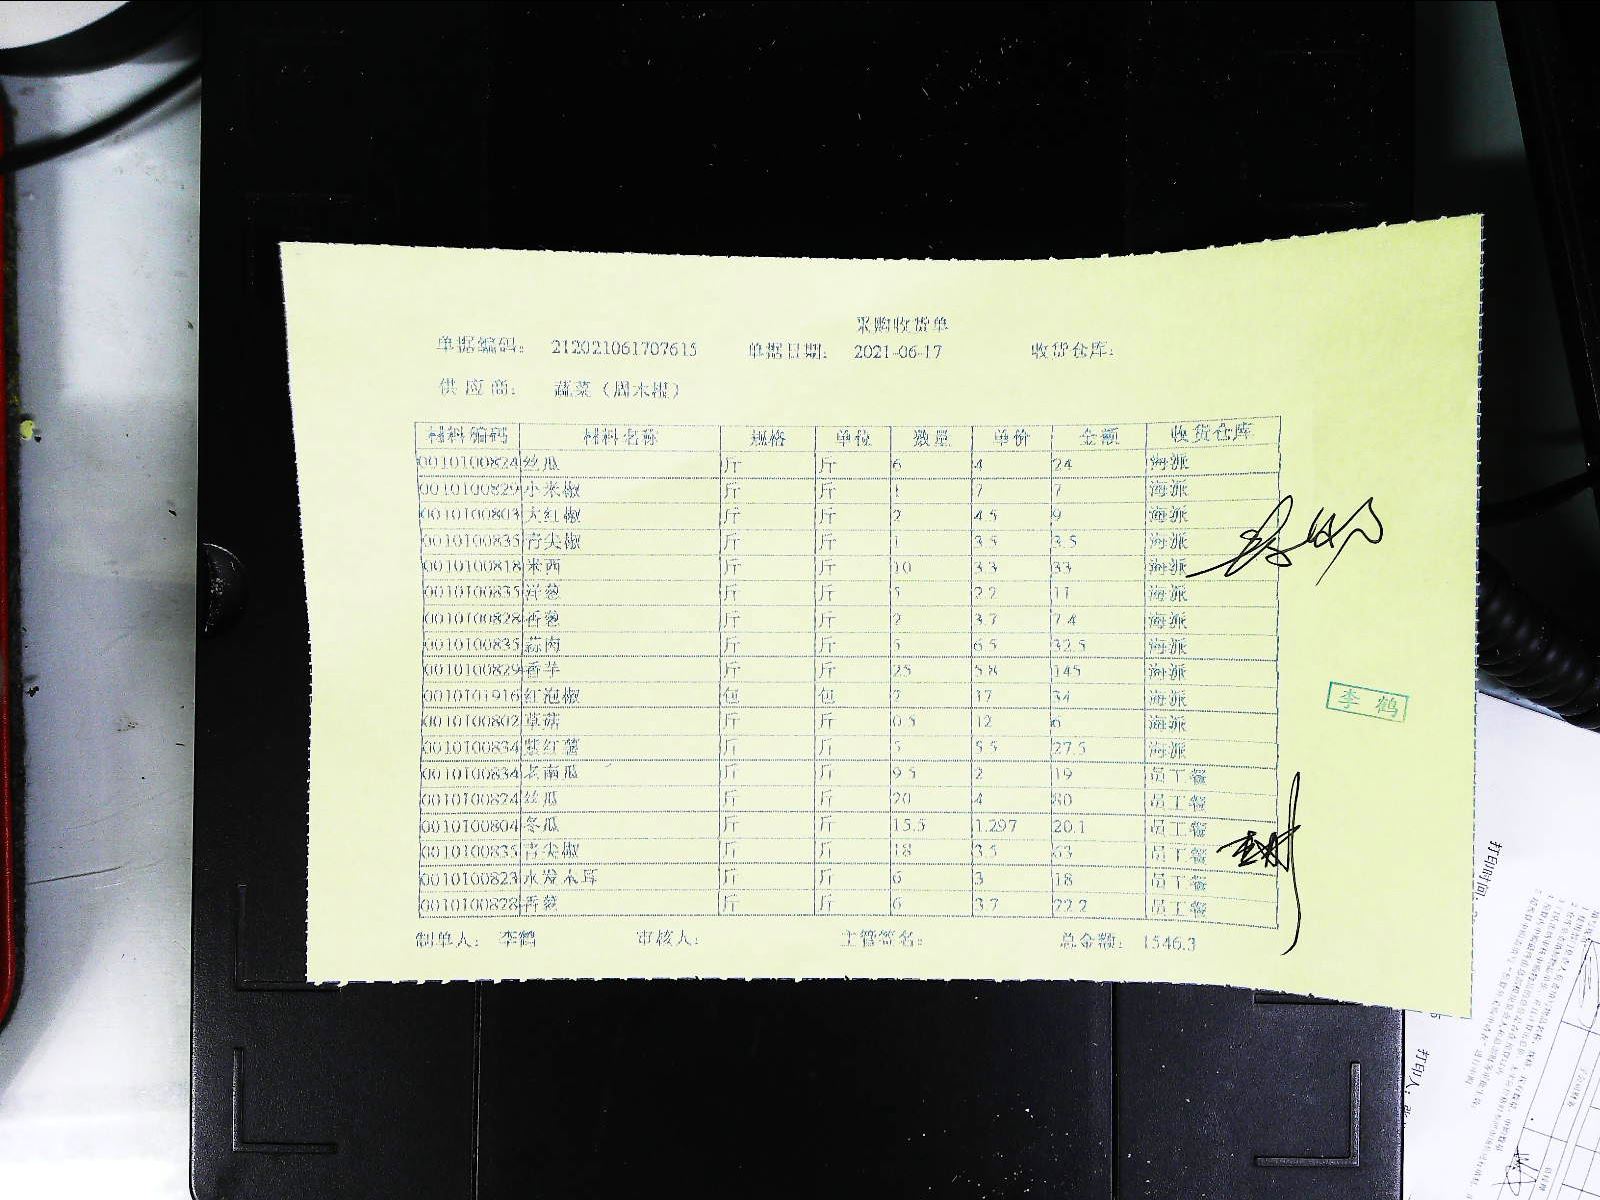 采购收货单
单据编码: 212021061707615 单据日期: 2021-06-17 收货仓库:
供应商: 蔬菜(周木根)
材料编码 材料名称 规格 单位 数量 单价 金额 收货仓库
0010100824 丝瓜 斤 斤 6 4 24 海派
0010100829 小米椒 斤 斤 1 7 7 海派
0010100803 大红椒 斤 斤 2 4.5 9 海派
0010100835 青尖椒 斤 斤 1 3.5 3.5 海派
0010100818 米西 斤 斤 10 3.3 33 海派
0010100835 洋葱 斤 斤 5 2.2 11 海派
0010100828 香葱 斤 斤 2 3.7 7.4 海派
0010100835 蒜肉 斤 斤 5 6.5 32.5 海派
0010100829 香芋 斤 斤 25 5.8 145 海派
0010101916 红泡椒 包 包 2 17 34 海派
0010100802 草菇 斤 斤 0.5 12 6 海派
0010100834 紫红薯 斤 斤 5 5.5 27.5 海派
0010100834 老南瓜 斤 斤 9.5 2 19 员工餐
0010100824 丝瓜 斤 斤 20 4 80 员工餐
0010100804 冬瓜 斤 斤 15.5 1.297 20.1 员工餐
0010100835 青尖椒 斤 斤 18 3.5 63 员工餐
0010100823 水发木耳 斤 斤 6 3 18 员工餐
0010100828 香葱 斤 斤 6 3.7 22.2 员工餐
制单人: 李鹤 审核人: 主管签名: 总金额: 1546.3
李鹤
打印时间:
打印人: